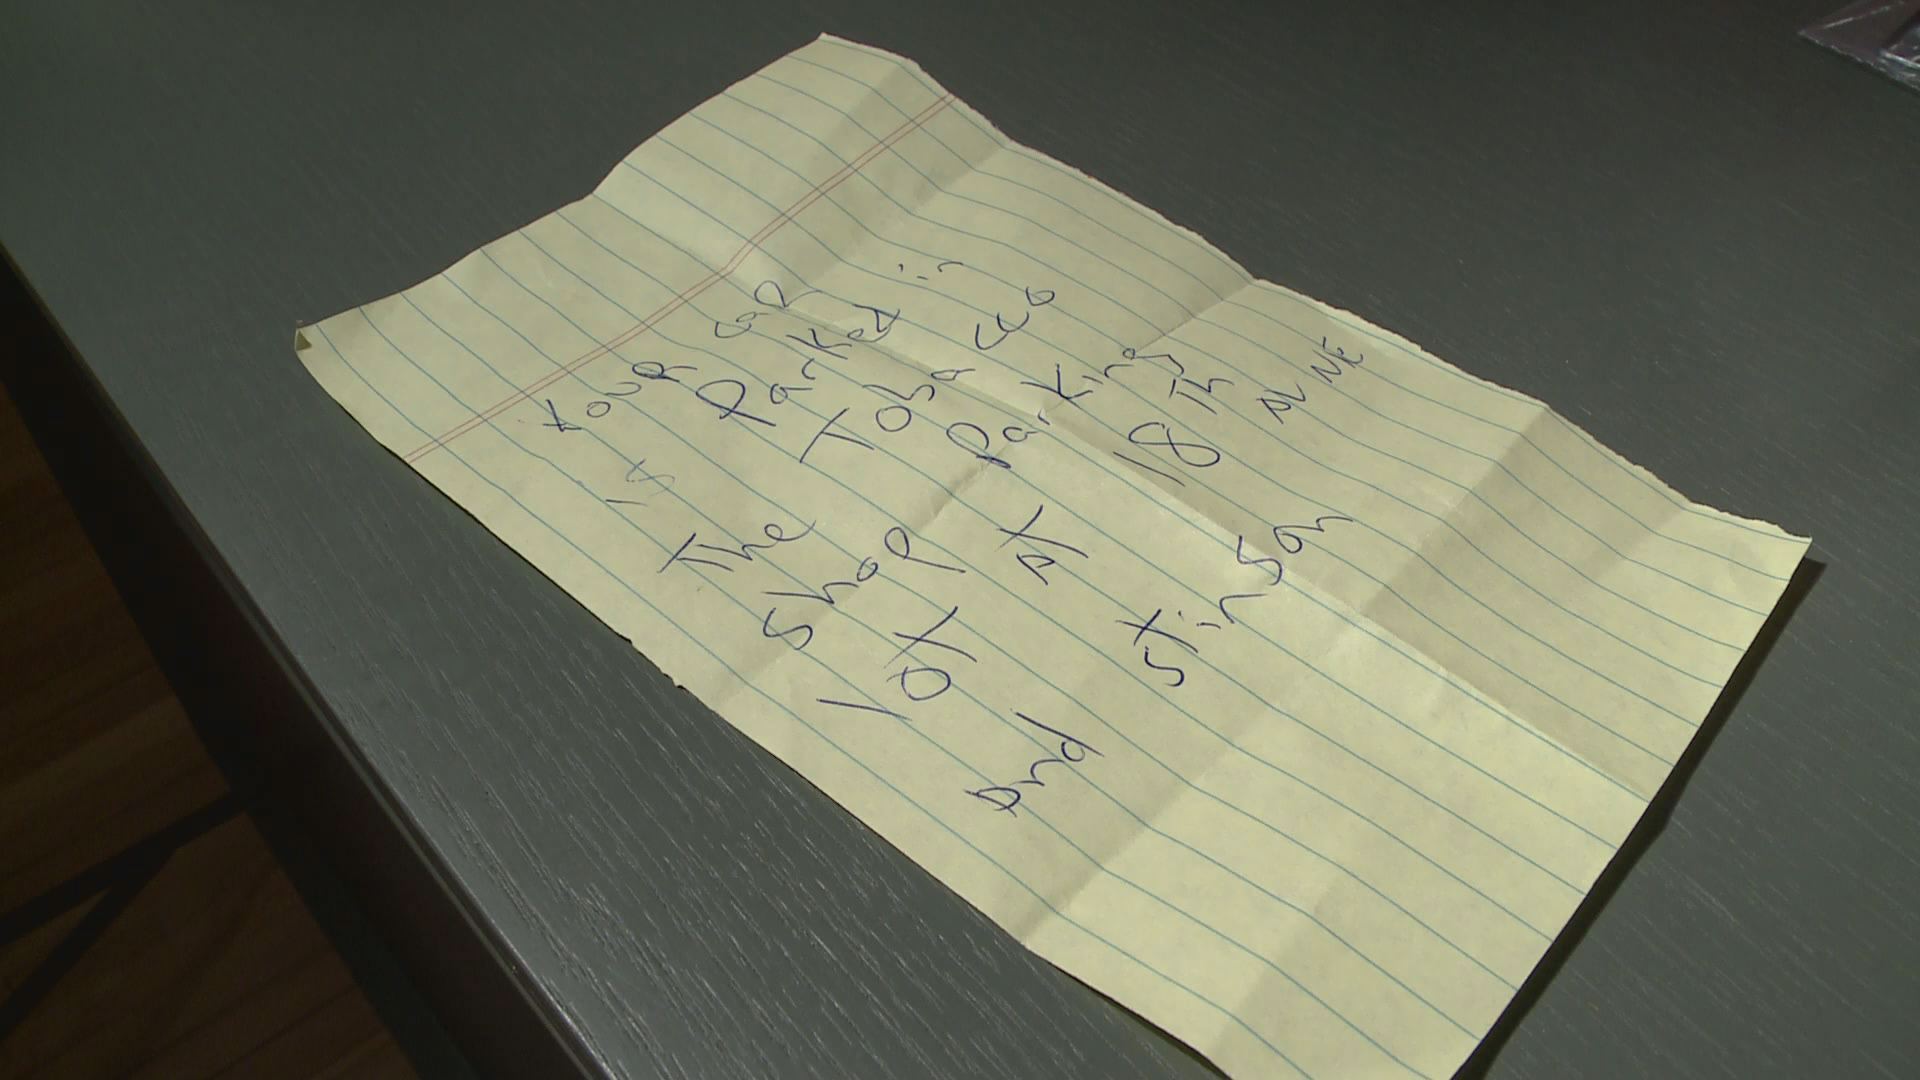 YOUR CAR
is Parked in
The Tobacco
Shop Parking
Lot At 18Th
And Stinson
AV NE